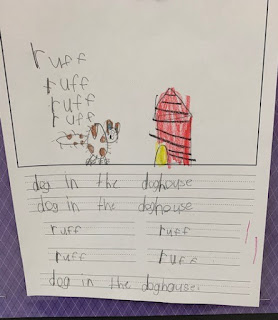 ruff
ruff
ruff
ruff
dog in the doghouse
dog in the doghouse
ruff ruff
ruff ruff.
dog in the doghouse.